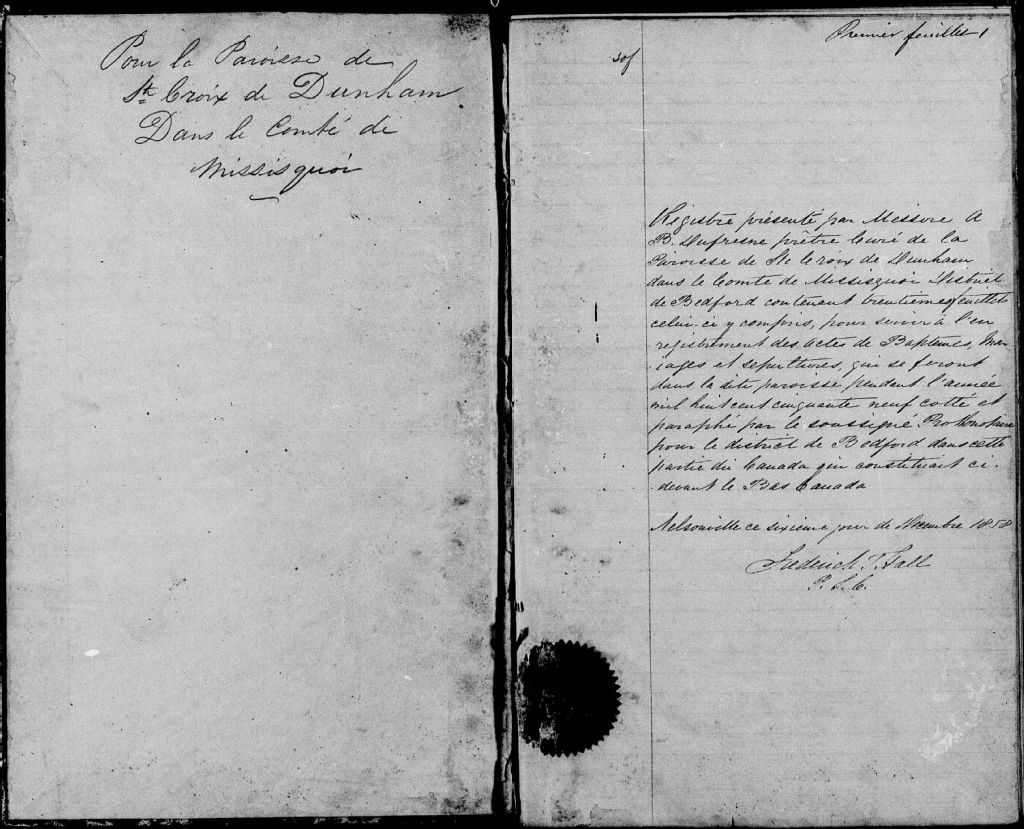 Pour la Paroisse de
Ste Croix de Dunham
Dans le Comté de
Missisquoi
Premier feuillet 1
Régistre présenté par Messire A
B. Dufresne prêtre Curé de la
Paroisse de Ste Croix de Dunham
dans le Comte de Missisquoi District
de Bedford contenant feuillets
celui-ci y compris, pour servir à l'en
registrement des actes de Baptemes, Mar
iages et sepultures, qui se feront
dans la dite paroisse pendant l'année
mil huit cent cinquante neuf cotté et
paraphé par le soussigné Prothonotaire
pour le district de Bedford dans cette
partie du Canada qui constituait ci-
devant le Bas Canada
Nelsonville ce sixieme jour de Decembre 1858
Frederick T. Hall
P. S. C.